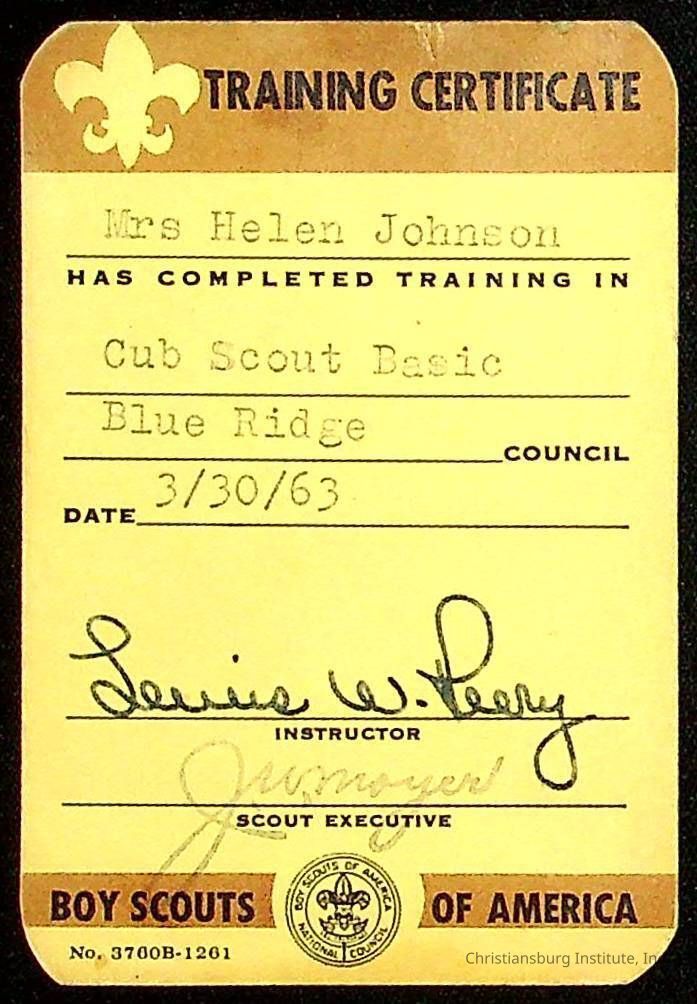 TRAINING CERTIFICATE
Mrs Helen Johnson
HAS COMPLETED TRAINING IN
Cub Scout Basic
Blue Ridge COUNCIL
DATE 3/30/63
W. Peery
INSTRUCTOR
J W Moyer
SCOUT EXECUTIVE
BOY SCOUTS OF AMERICA
BOY SCOUTS OF AMERICA
NATIONAL COUNCIL
No. 3760B-1261
Christiansburg Institute, In